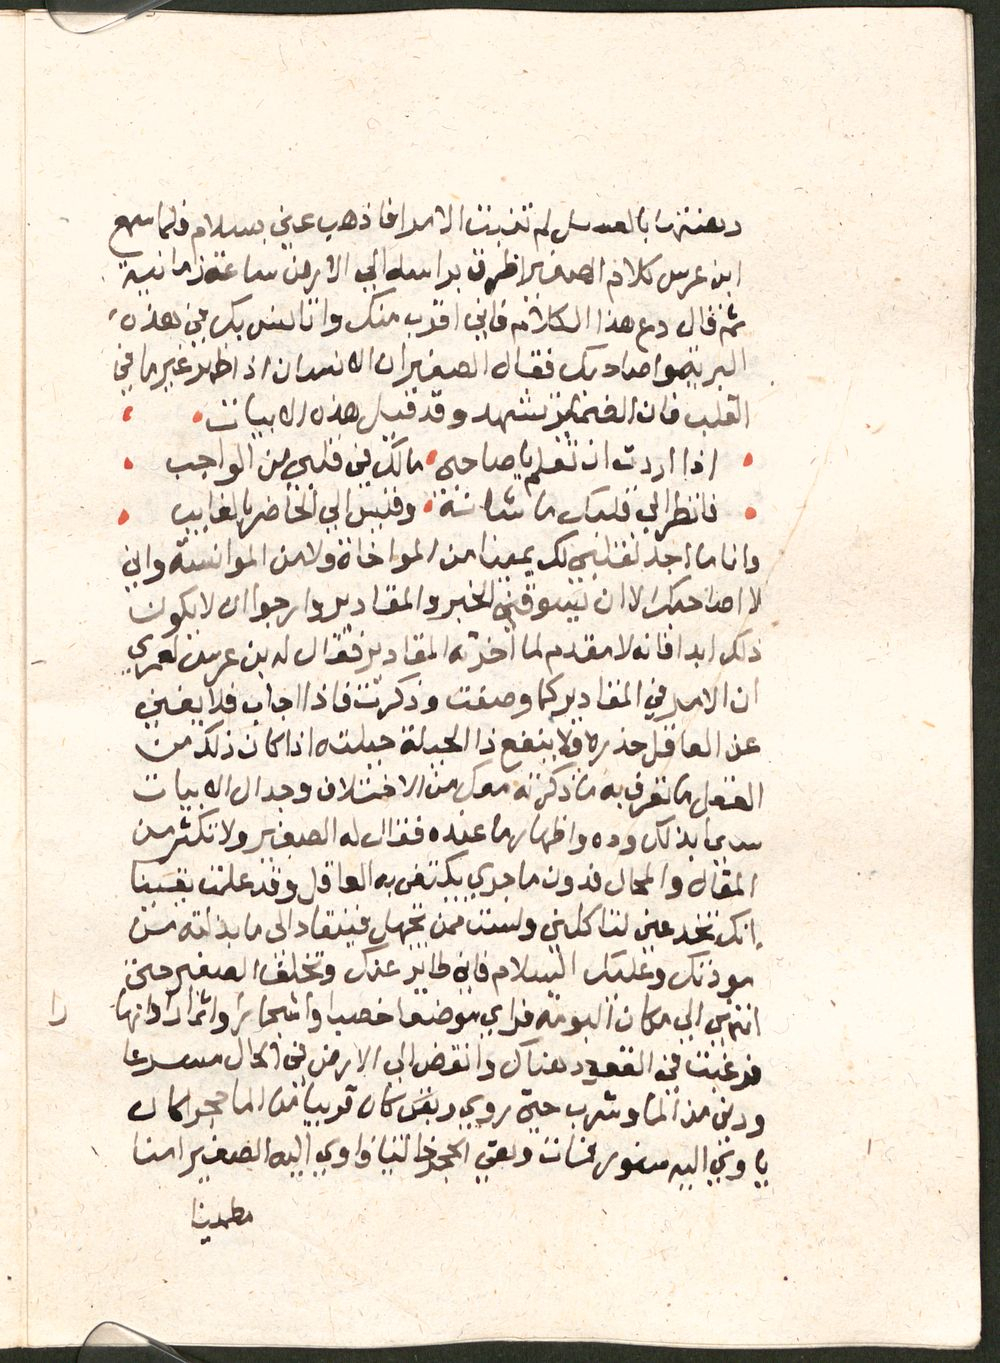 دهنتها بالعسل لم تنبت الا مرا فاذهب عني بسلام فلما سمع
ابن عرس كلام الصفير اطرق براسه الي الارض ساعة زمانية
ثم قال دع هذا الكلام فاني اقرب منك وانا انس بك في هذه
البرية واصادقك فقال الصفير ان الانسان اذ اظهر غير ما في
القلب فان الضمير تشهد وقد قيل هذه الابيات
اذا اردت ان تعلم يا صاحبي مالك في قلبي من الواجب
فانظر الي قلبك ما شانه وقس الي الحاضر بالغايب
وانا ما اجد لقلبي لك يمينا من المواخاة ولا من الموانسة واني
لا اصاحبك الا ان يسوقني الخير والمقادير وارجوا ان لا يكون
ذلك ابدا فانه لا مقدم لما أخرته المقادير فقال له بن عرس لعمري
ان الامر في المقادير كما وصفت وذكرت فاذا اجاب فلا يغني
عن العاقل حذره ولا ينفع ذا الحيلة حيلته اذا كان ذلك من
الفعل ما تعرف به ما ذكرته معك من الاختلاف وجدال الابيات
بذلك وده واظهارها عنده فقال له الصفير ولا تكثر من
المقال والمحال فدون ما جري يكتفى به العاقل وقد علمت يقينا
انك تخدعني لتاكلني ولست ممن تجهل فينقاد الى ما بذلته من
مودتك وعليك السلام فاني طاير عنك وتخلف الصفير حتى
انتهي الي مكان البومة فراي موضعا خصبا واشجارا واثمارا وانهارا
فرغبت في القعود هناك وانقض الى الارض في الحال مسرعا
ودنى من الماء وشرب حتى روي وبقى كان قريبا من الماء جحرا كان
ياوي اليه سنور فمات وبقي الجحر خاليا فاوي اليه الصفير امنا
مطمينا